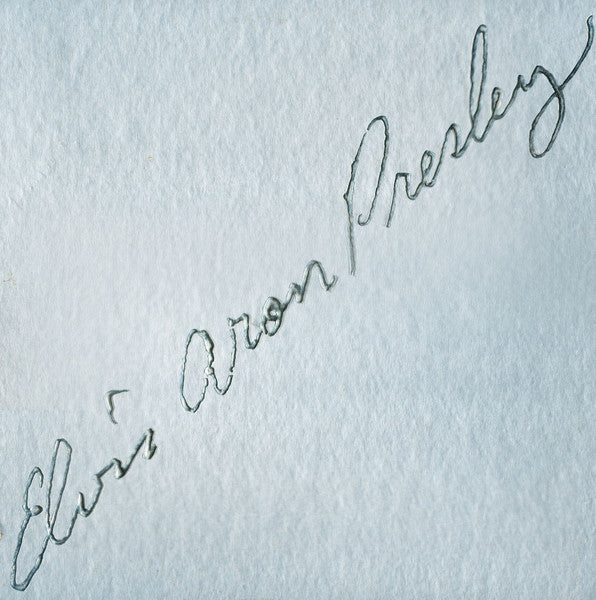 Elvis Aron Presley